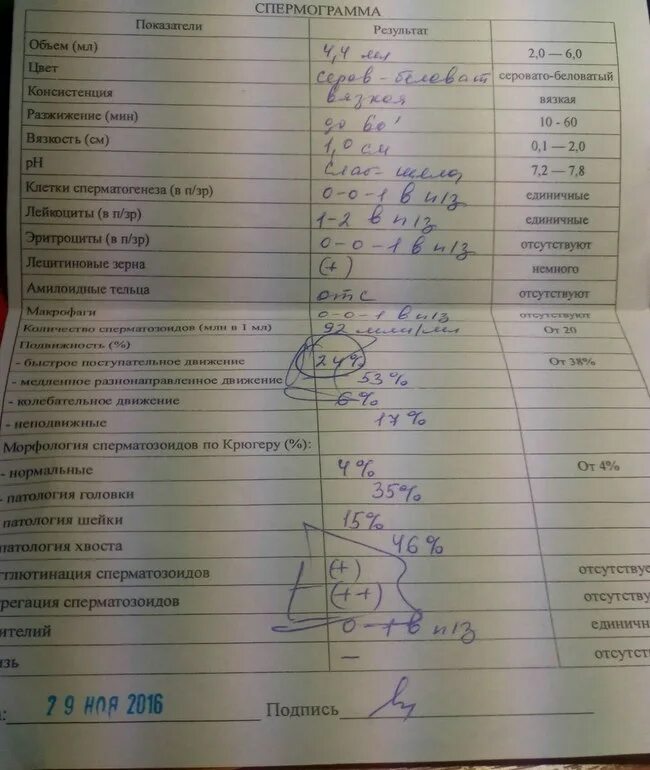 СПЕРМОГРАММА
Показатели Результат
Объем (мл) 4,4 мл 2,0 — 6,0
Цвет серов-беловат серовато-беловатый
Консистенция вязкая вязкая
Разжижение (мин) до 60' 10 - 60
Вязкость (см) 1,0 см 0,1 — 2,0
pH слаб-щелоч 7,2 – 7,8
Клетки сперматогенеза (в п/зр) 0-0-1 в п/з единичные
Лейкоциты (в п/зр) 1-2 в п/з единичные
Эритроциты (в п/зр) 0-0-1 в п/з отсутствуют
Лецитиновые зерна (+) немного
Амилоидные тельца отс отсутствуют
Макрофаги 0-0-1 в п/з отсутствуют
Количество сперматозоидов (млн в 1 мл) 92 млн/мл От 20
Подвижность (%)
- быстрое поступательное движение 24% От 38%
- медленное разнонаправленное движение 53%
- колебательное движение 6%
- неподвижные 17%
Морфология сперматозоидов по Крюгеру (%):
- нормальные 4% От 4%
- патология головки 35%
патология шейки 15%
патология хвоста 46%
глютинация сперматозоидов (+) отсутствуе
регация сперматозоидов (++) отсутству
ителий 0-1 в п/з единичн
изь — отсутст
: 29 НОЯ 2016 Подпись